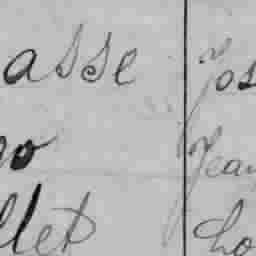 asse Jos
go Jean
llet Lo